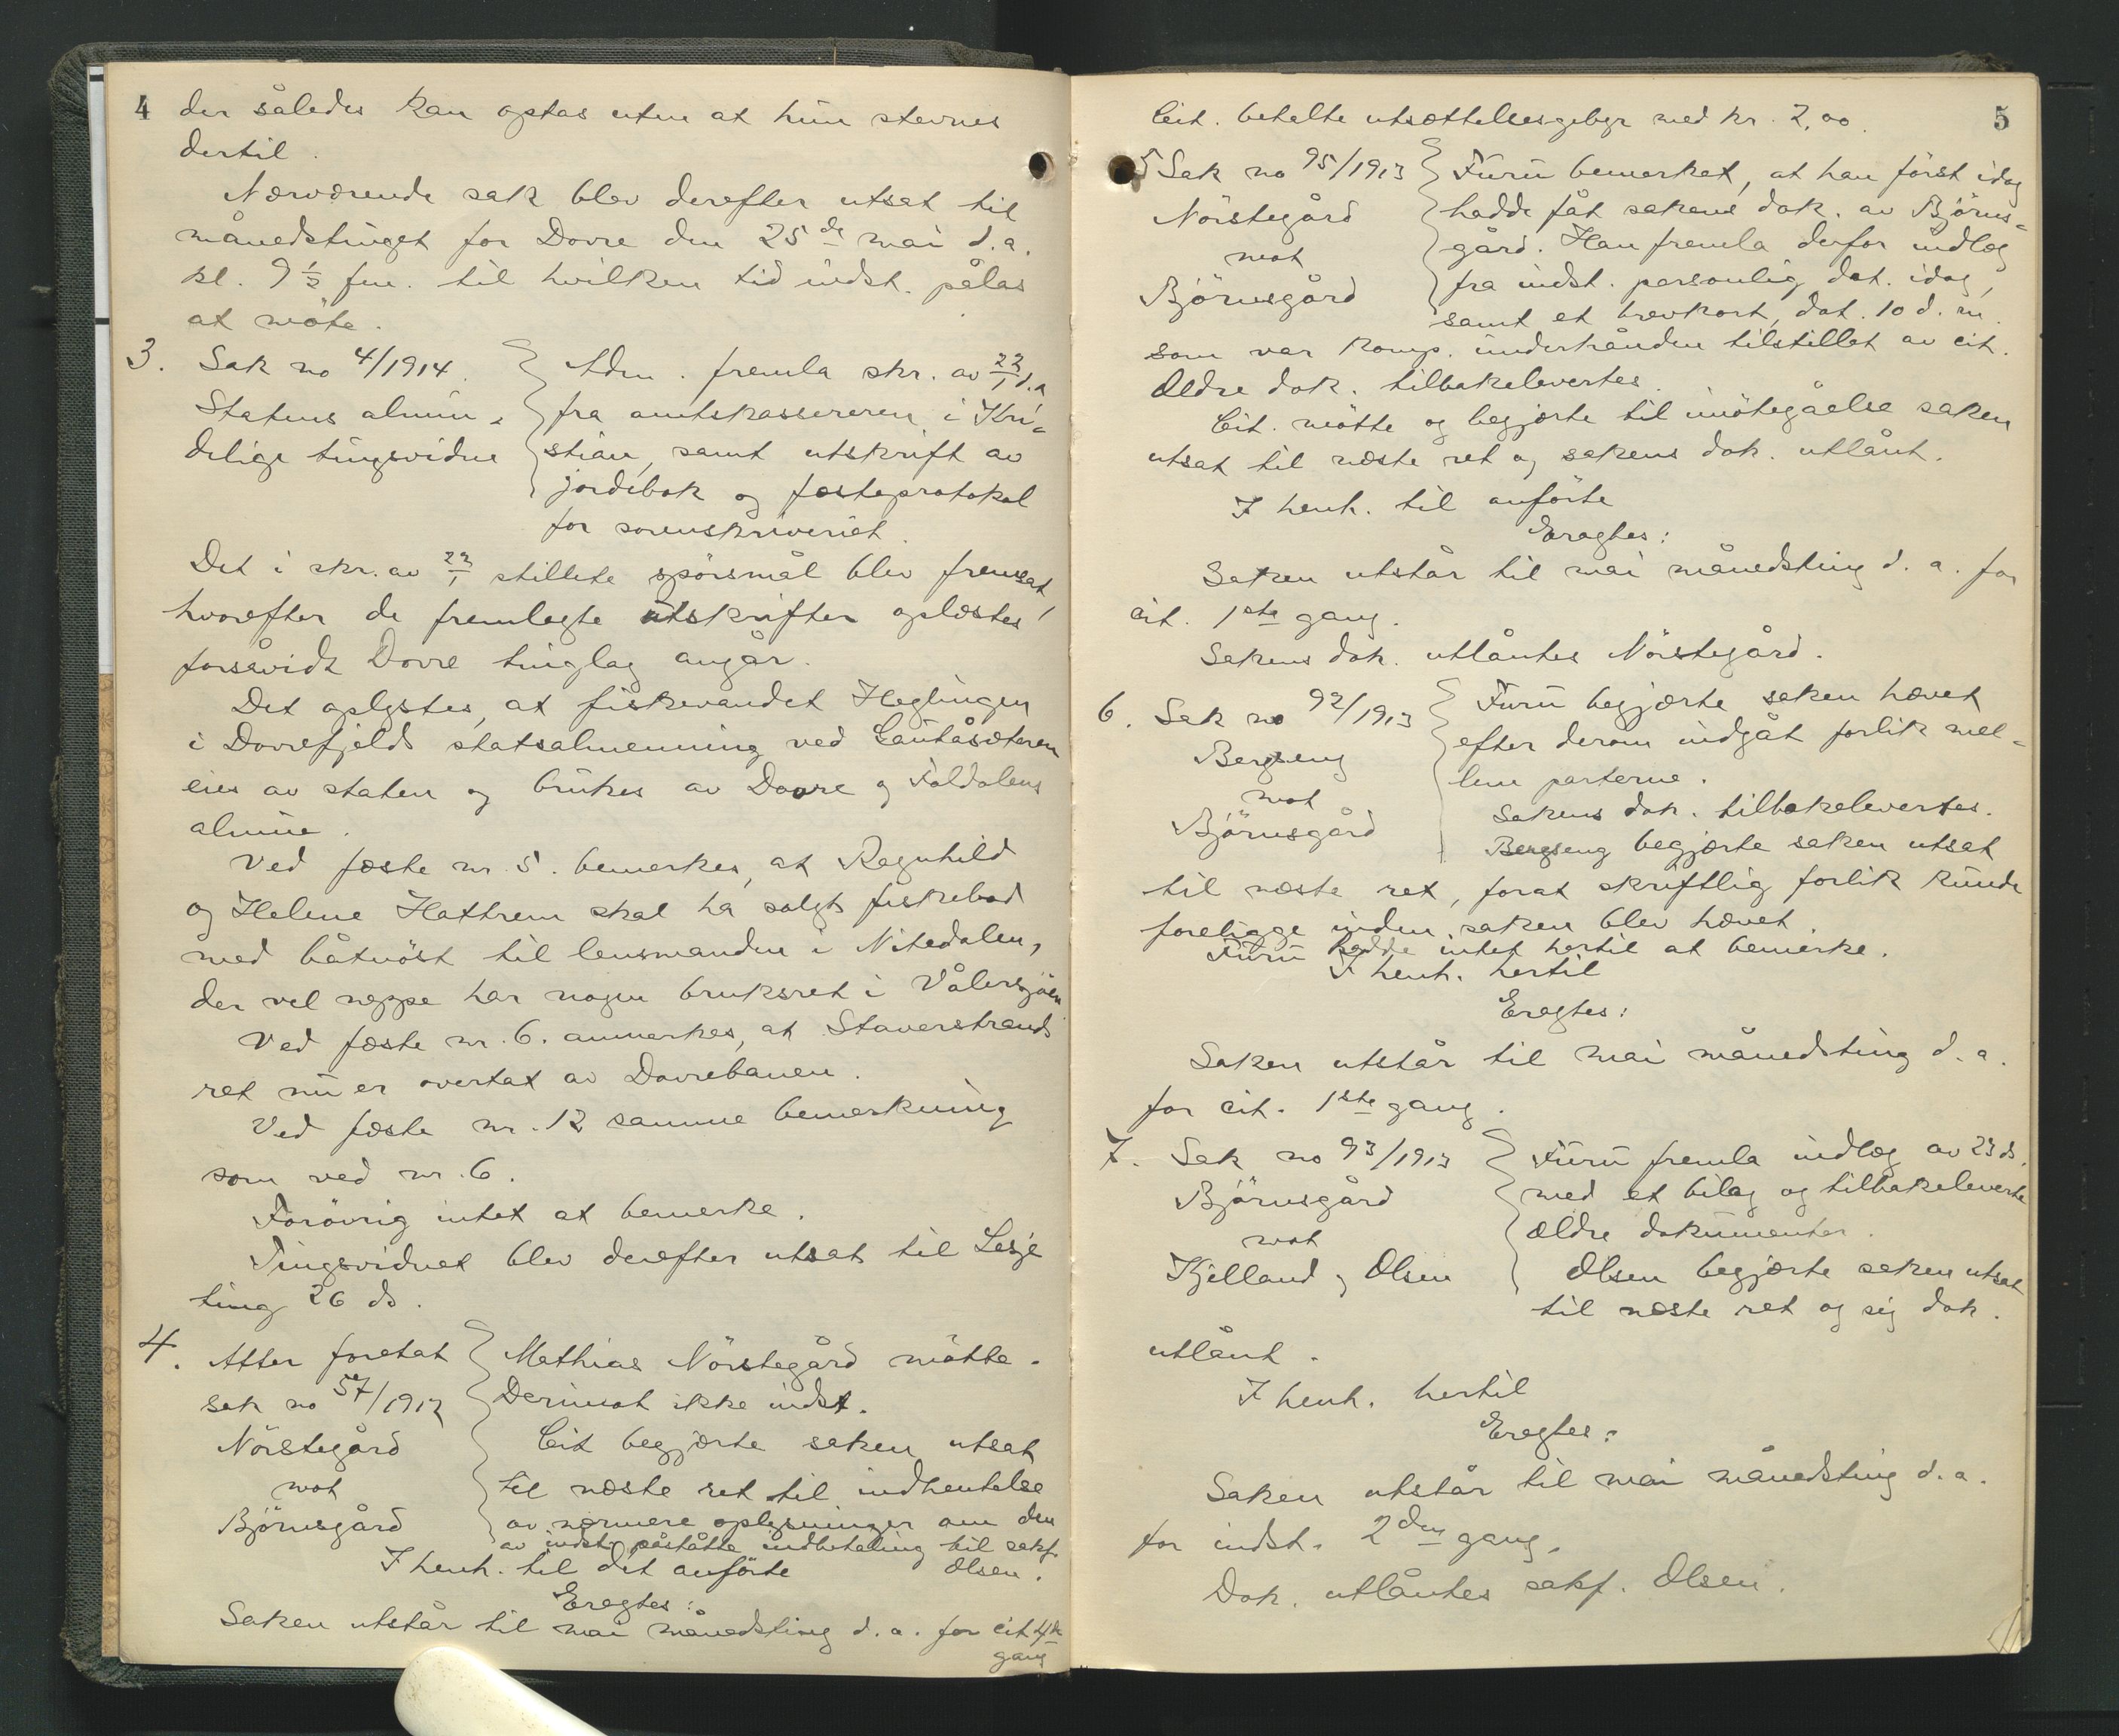 4
der således kan optas uten at hun stevnes
dertil.
Nærværende sak blev derefter utsat til
månedstinget for Dovre den 25de mai d.a.
kl. 9½ fm. til hvilken tid indst. pålas
at møte.
3. Sak no 4/1914.
Statens almin-
delige tingsvidne
Adm. fremla skr. av 22/1 d.a
fra amtskassereren i Kri-
stian, samt utskrift av
jordebok og fæsteprotokol
for sorenskriveriet.
Det i skr. av 22/1 stillete spörsmål blev fremsat,
hvorefter de fremlagte utskrifter oplæstes,
forsåvidt Dovre tinglag angår.
Det oplystes, at fiskevandet Heglingen
i Dovrefjelds statsalmenning ved Gautåsæteren
eies av staten og brukes av Dovre og Foldalens
almue.
Ved fæste nr. 5. bemerkes, at Ragnhild
og Helene Hattrem skal ha solgt fiskebod
med båtnöst til lensmanden i Nitedalen,
der vel neppe har nogen bruksret i Vålersjöen
Ved fæste nr. 6. anmerkes, at Staverstrands
ret nu er overtat av Dovrebanen.
Ved fæste nr. 12 samme bemerkning
som ved nr. 6.
Forövrig intet at bemerke.
Tingsvidnet blev derefter utsat til Lesje
ting 26 ds.
4. Atter foretat
sak no 57/1912
Nörstegård
mot
Björnsgård
Mathias Nörstegård mötte.
Derimot ikke indst.
Cit begjærte saken utsat
til næste ret til indhentelse
av nærmere oplysninger om den
av indst. påståtte indbetaling til sakf.
Olsen.
I henh. til det anförte
Eragtes:
Saken utstår til mai månedsting d.a. for cit 4de
gang
5
Cit. betalte utsættelsesgebyr med kr. 2,00.
5 Sak no 95/1913
Nörstegård
mot
Björnsgård
Furu bemerket, at han först idag
hadde fåt sakens dok. av Björns-
gård. Han fremla derfor indlæg
fra indst. personlig dat. idag,
samt et brevkort, dat. 10 d.m.
som var komp. underhånden tilstillet av cit.
Ældre dok. tilbakelevertes.
Cit. mötte og begjærte til imötegåelse saken
utsat til næste ret og sakens dok. utlånt.
I henh. til anförte
Eragtes:
Saken utstår til mai månedsting d.a. for
cit. 1ste gang.
Sakens dok. utlåntes Nörstegård.
6. Sak no 92/1913
Bergseng
mot
Björnsgård
Furu begjærte saken hævet
efter derom indgåt forlik mel-
lem parterne.
Sakens dok. tilbakelevertes.
Bergseng begjærte saken utsat
til næste ret, forat skriftlig forlik kunde
foreligge inden saken blev hævet.
Furu hadde intet hertil at bemerke.
I henh. hertil
Eragtes:
Saken utstår til mai månedsting d.a.
for cit. 1ste gang.
7. Sak no 93/1913
Björnsgård
mot
Kjelland og Olsen
Furu fremla indlæg av 23 ds.
med et bilag og tilbakeleverte
ældre dokumenter.
Olsen begjærte saken utsat
til næste ret og sig dok.
utlånt.
I henh. hertil
Eragtes:
Saken utstår til mai månedsting d.a.
for indst. 2den gang.
Dok. utlåntes sakf. Olsen.